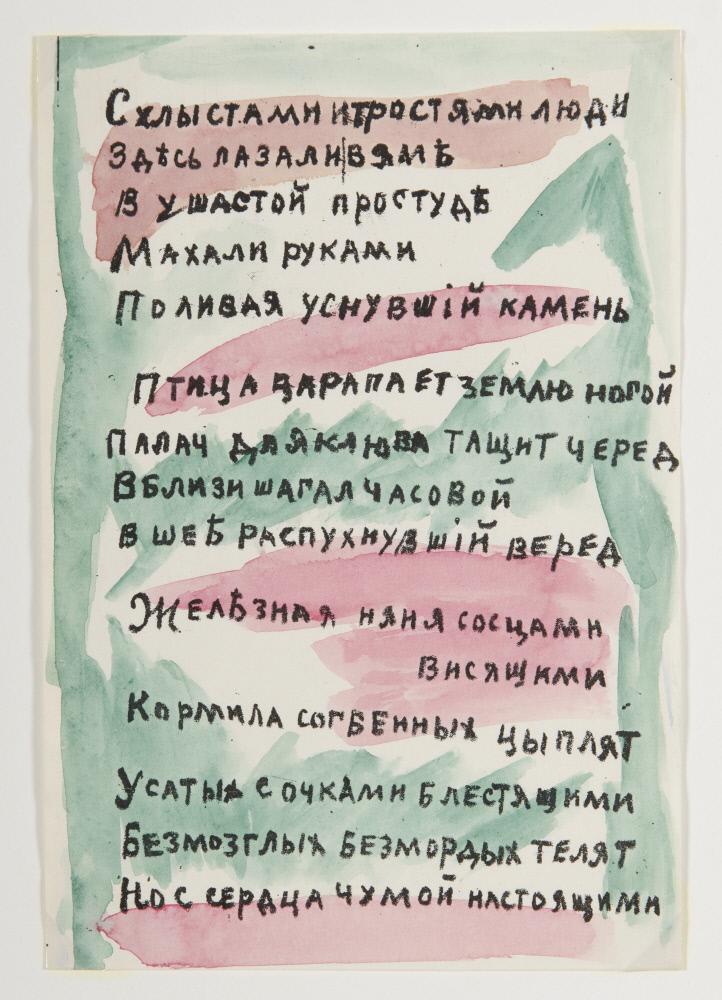 Схлыстами итростями люди
Здѣсь лазали вямѣ
В ушастой простудѣ
Махали руками
Поливая уснувшій камень
Птица царапает землю ногой
Палач для клюва тащит черед
Вблизи шагал часовой
В шеѣ распухнувшій веред
Желѣзная няня сосцами
Висящими
Кормила согбенных цыплят
Усатых с очками блестящими
Безмозглых безмордых телят
Но с сердца чумой настоящими